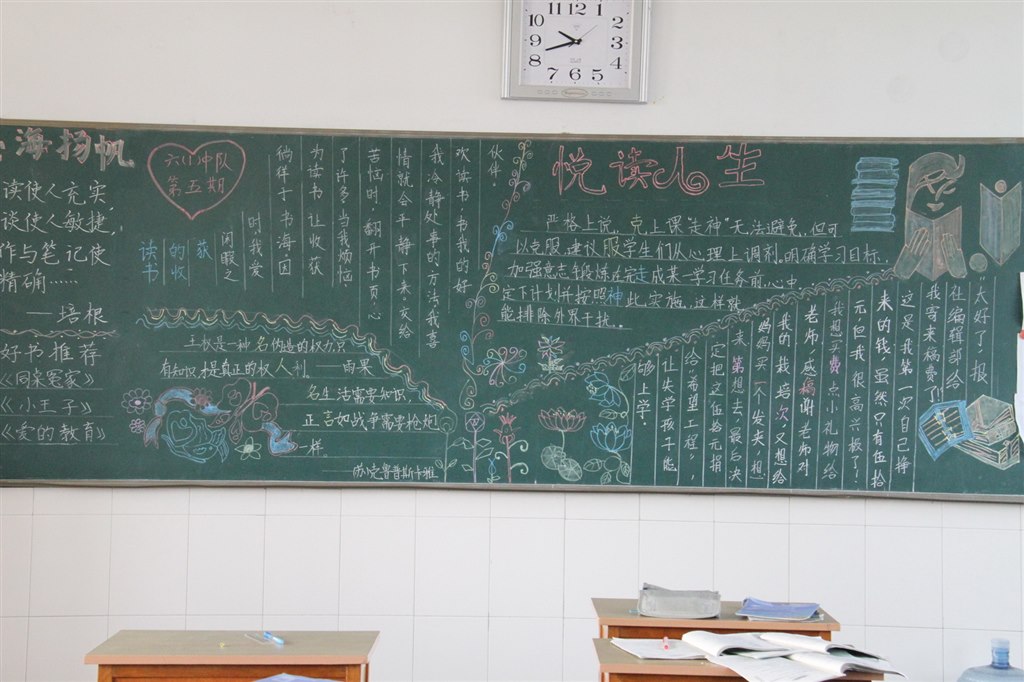 11 12 1
10 2
9 3
8 4
7 6 5
海扬帆
读使人充实
谈使人敏捷,
作与笔记使
精确……
——培根
好书推荐
《同桌冤家》
《小王子》
《爱的教育》
六(1)中队
第五期
读书的收获
闲暇之
时我爱
徜徉于书海,因
为读书让收获
了许多当我烦恼
苦恼时,翻开书页,心
情就会平静下来。交给
我冷静处事的方法。我喜
欢读书,书我的好
伙伴。
王权是一种名伪造的权力,只
有知识才是真正的权人利。——雨果
名生活需要知识
正言如战争需要枪炮
一样。
——苏克鲁普斯卡雅
悦读人生
严格上说,克上课“走神”无法避免,但可
以克服。建议服学生们从心理上调剂。明确学习目标、
加强意志锻炼。在完走成某一学习任务前,心中
定下计划并按照神此实施,这样就
能排除外界干扰。
太好了,报
社编辑部给
我寄来稿费了!
这是我第一次自己挣
来的钱,虽然只有伍拾
元但我很高兴极了!
我想买费点小礼物给
老师,感稿谢老师对
我的栽培。次,又想给
妈妈买一个发夹,想
来第想去,最后决
定把这伍拾元捐
给“希望工程”,
让失学孩子能
够上学。